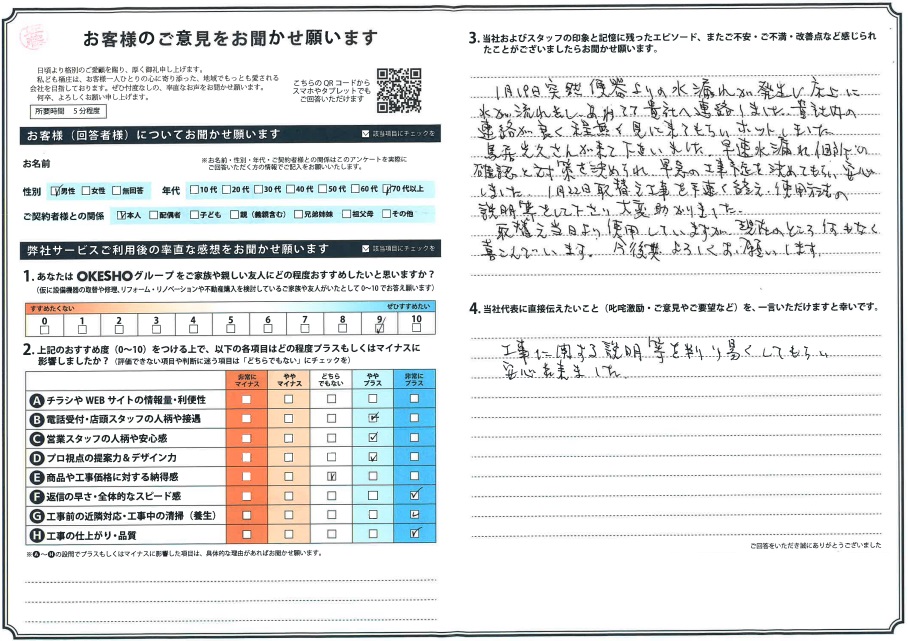 お客様のご意見をお聞かせ願います
日頃より格別のご愛顧を賜り、厚く御礼申し上げます。
私ども桶庄は、お客様一人ひとりの心に寄り添った、地域でもっとも愛される
会社を目指しております。ぜひ忖度なしの、率直なお声をお聞かせください。
何卒、よろしくお願い申し上げます。
所要時間 5分程度
こちらのQRコードから
スマホやタブレットでも
ご回答いただけます
お客様（回答者様）についてお聞かせ願います
該当項目にチェックを
お名前
※お名前・性別・年代・ご契約者様との関係はこのアンケートを実際に
ご回答いただく方の情報でご記入をお願いいたします。
性別 男性 女性 無回答 年代 10代 20代 30代 40代 50代 60代 70代以上
ご契約者様との関係 本人 配偶者 子ども 親（義親含む） 兄弟姉妹 祖父母 その他
弊社サービスご利用後の率直な感想をお聞かせ願います
該当項目にチェックを
1. あなたは OKESHOグループ をご家族や親しい友人にどの程度おすすめしたいと思いますか？
（仮に設備機器の取替や修理、リフォーム・リノベーションや不動産購入を検討しているご家族や友人がいたとして0〜10でお答え願います）
すすめたくない ぜひすすめたい
0 1 2 3 4 5 6 7 8 9 10
2. 上記のおすすめ度（0〜10）をつける上で、以下の各項目はどの程度プラスもしくはマイナスに
影響しましたか？（評価できない項目や判断に迷う項目は「どちらでもない」にチェックを）
非常にマイナス ややマイナス どちらでもない ややプラス 非常にプラス
A チラシやWEBサイトの情報量・利便性
B 電話受付・店頭スタッフの人柄や接遇
C 営業スタッフの人柄や安心感
D プロ視点の提案力＆デザイン力
E 商品や工事価格に対する納得感
F 返信の早さ・全体的なスピード感
G 工事前の近隣対応・工事中の清掃（養生）
H 工事の仕上がり・品質
※A〜Hの設問でプラスもしくはマイナスに影響した項目は、具体的な理由があればお聞かせ願います。
3. 当社およびスタッフの印象と記憶に残ったエピソード、またご不安・ご不満・改善点など感じられ
たことがございましたらお聞かせ願います。
1月19日突然便器よりの水漏れが発生し床上に
水が流れ出し、あわてて貴社へ連絡しました。貴社内の
連絡が良く 見に来てもらいホットしました
さんが来て下さいました。早速水漏れ個所の
確認と対策を決められ、早急の工事予定を決めてもらい安心
しました。1月22日取替え工事を手速く終え、使用方法の
説明等をして下さい大変助かりました。
取替え当日より使用していますが、現在のところ何もなく
喜こんでいます。今後共よろしくお願いします。
4. 当社代表に直接伝えたいこと（叱咤激励・ご意見やご要望など）を、一言いただけますと幸いです。
工事に関する説明等を判り易くしてもらい
安心出来ました。
ご回答をいただき誠にありがとうございました